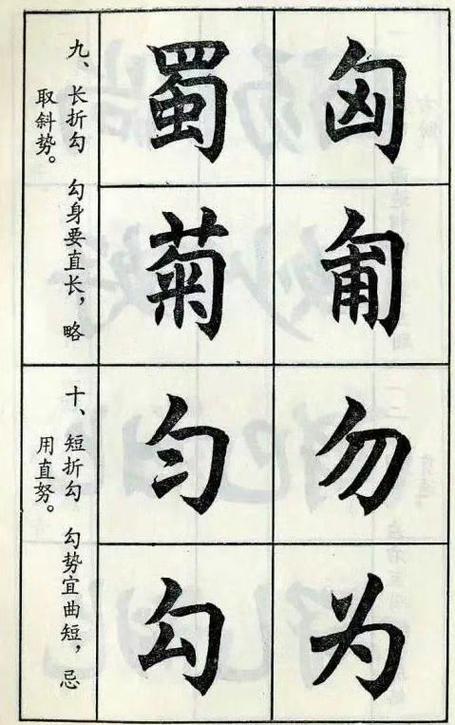 九、长折勾　勾身要直长，略
取斜势。
匈
匍
蜀
菊
十、短折勾　勾势宜曲短，忌
用直努。
勿
为
匀
勾